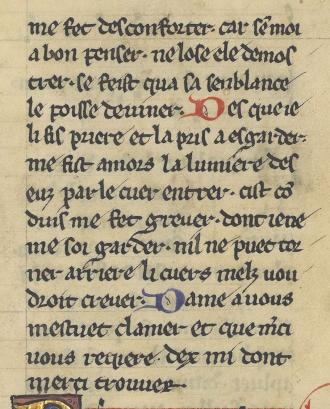 me fet desconforter. car sẽ moi
a bon penser. ne lose ele demos
trer. se feist qua sa senblance
le poisse deviner. Des que ie
li fis priere et la pris a esgarder.
me fist amors la lumiere des
euz par le cuer entrer. cist cõ
duis me fet grever. dont ie ne
me soi garder. nil ne puet tor
ner arriere li cuers melz vou
droit crever. Dame a vous
mestuet clamer et que m̃ci
vous reqiere. dex mi dont
merci trouver